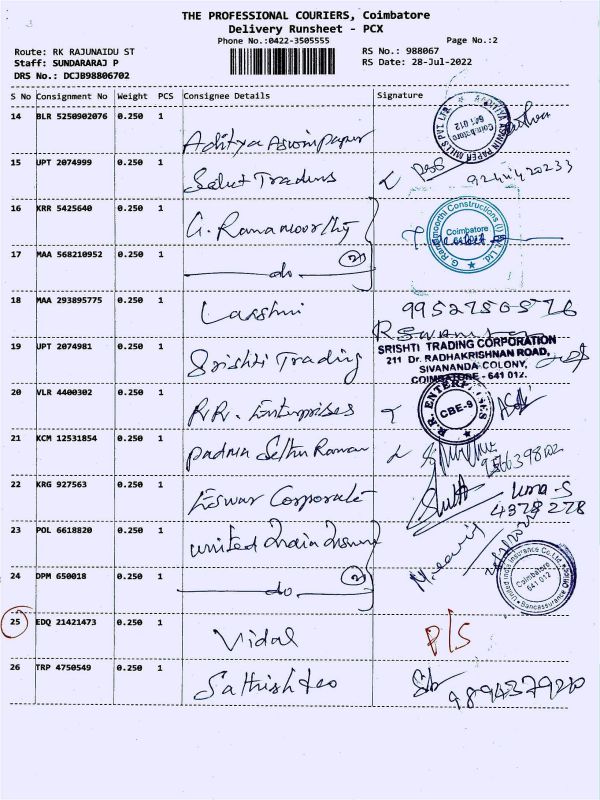 THE PROFESSIONAL COURIERS, Coimbatore
Delivery Runsheet - PCX
Phone No.:0422-3505555
Page No.:2
Route: RK RAJUNAIDU ST
RS No.: 988067
Staff: SUNDARARAJ P
RS Date: 28-Jul-2022
DRS No.: DCJB98806702
S No Consignment No Weight PCS Consignee Details Signature
14 BLR 5250902076 0.250 1
Aditya Aswin paper
15 UPT 2074999 0.250 1
Select Traders
16 KRR 5425640 0.250 1
G. Ramamoorthy
Coimbatore
17 MAA 568210952 0.250 1
do 2
18 MAA 293895775 0.250 1
Lakshmi
19 UPT 2074981 0.250 1
Srishti Trading
SRISHTI TRADING CORPORATION
211 Dr. RADHAKRISHNAN ROAD,
SIVANANDA COLONY,
COIMBATORE - 641 012.
20 VLR 4400302 0.250 1
R.R. Enterprises
R.R. ENTERPRISES
CBE-9
21 KCM 12531854 0.250 1
Padma Sethu Raman
22 KRG 927563 0.250 1
Eswar Corporate
Uma-S
4378278
23 POL 6618820 0.250 1
united India Insur
24 DPM 650018 0.250 1
do 2
Coimbatore
641 012
25 EDQ 21421473 0.250 1
Vidal
P/S
26 TRP 4750549 0.250 1